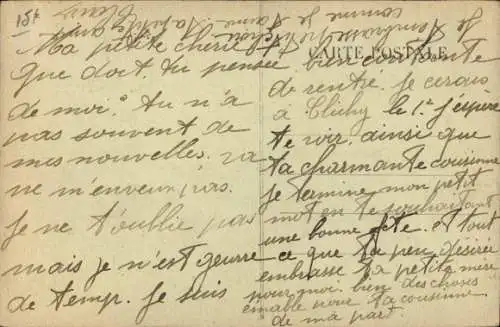 Ma petite chérie
que doit tu pensée
de moi. tu n'a
pas souvent de
mes nouvelles.
ne m'enveux pas.
je ne t'oublie pas
mais je n'est geurre
de temp. Je suis
CARTE POSTALE
bien contente
de rentre. je serais
à Clichy le 1er j'espère
te voir. ainsi que
ta charmante cousinne
je termine mon petit
mot en te souhaitant
une bonne fête. et tout
ce que ta peu désirée
embrasse ta petite mère
pour moi. bien des choses
aimable pour ta cousinne
de ma part.
Je
t'embrasse
comme je t'aime